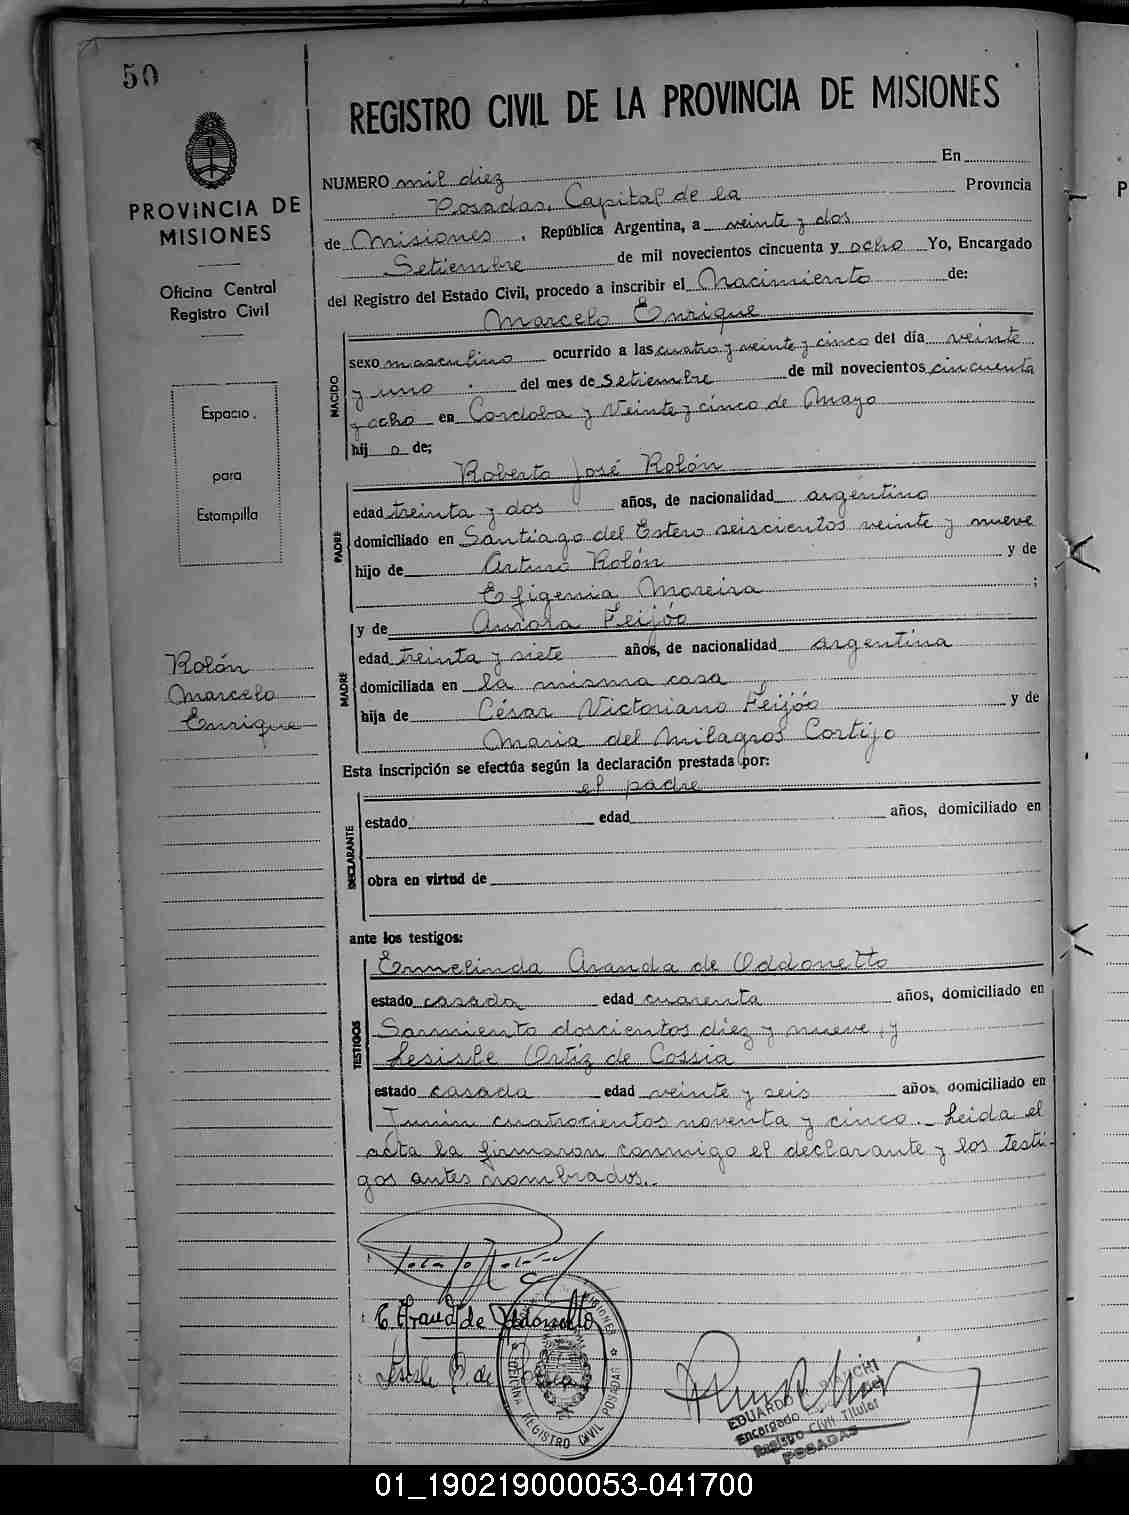 50
REGISTRO CIVIL DE LA PROVINCIA DE MISIONES
PROVINCIA DE
MISIONES
Oficina Central
Registro Civil
Espacio
para
Estampilla
Rolón
Marcelo
Enrique
NUMERO mil diez En
Posadas, Capital de la Provincia
de Misiones, República Argentina, a veinte y dos
Setiembre de mil novecientos cincuenta y ocho Yo, Encargado
del Registro del Estado Civil, procedo a inscribir el Nacimiento de:
Marcelo Enrique
NACIDO
sexo masculino ocurrido a las cuatro y veinte y cinco del día veinte
y uno del mes de Setiembre de mil novecientos cincuenta
y ocho en Cordoba y Veinte y cinco de Mayo
hij o de;
Roberto José Rolón
PADRE
edad treinta y dos años, de nacionalidad argentino
domiciliado en Santiago del Estero seiscientos veinte y nueve
hijo de Arturo Rolón y de
Efigenia Moreira ;
y de Aurora Feijóo
MADRE
edad treinta y siete años, de nacionalidad argentina
domiciliada en la misma casa
hija de César Victoriano Feijóo y de
Maria del Milagros Cortijo
Esta inscripción se efectúa según la declaración prestada por:
el padre
DECLARANTE
estado edad años, domiciliado en
obra en virtud de
ante los testigos:
TESTIGOS
Ermelinda Aranda de Oddonetto
estado casada edad cuarenta años, domiciliado en
Sarmiento doscientos diez y nueve, y
Lesisle Ortiz de Cossia
estado casada edad veinte y seis años, domiciliado en
Junin cuatrocientos noventa y cinco.- Leida el
acta la firmaron conmigo el declarante y los testi-
gos antes nombrados.-
E. Arand de Oddonetto
OFICINA REGISTRO CIVIL POSADAS
MISIONES
EDUARDO BIANCHI
Encargado del
Registro Civil Titular
POSADAS
01_190219000053-041700